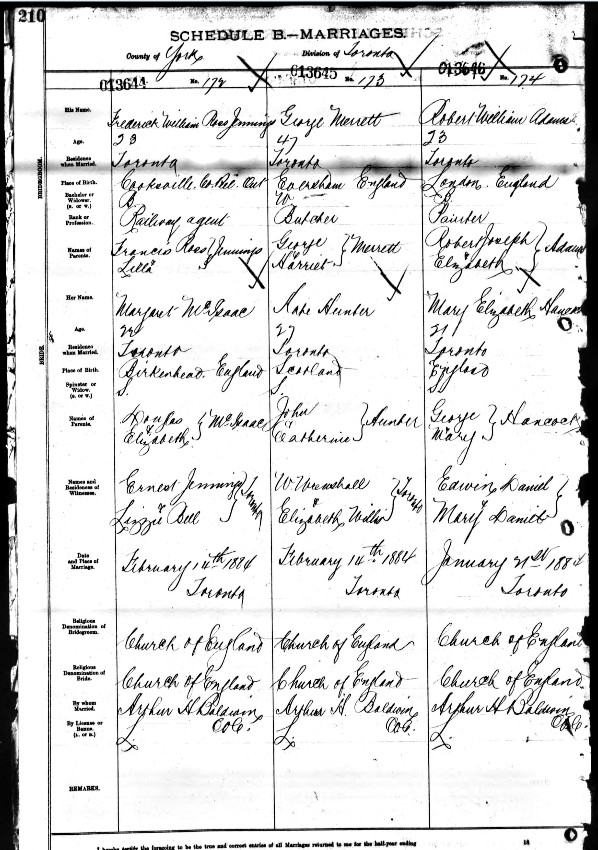 210
SCHEDULE B.—MARRIAGES.
County of York Division of Toronto
013644 No. 172 013645 No. 173 013646 No. 174
BRIDEGROOM.
His Name. Frederick William Ross Jennings George Merrett Robert William Adams
Age. 23 47 23
Residence when Married. Toronto Toronto Toronto
Place of Birth. Cooksville. Co. Peel. Ont Eversham England London. England
Bachelor or Widower. (B. or W.) B. W B
Rank or Profession. Railway agent Butcher Painter
Names of Parents. Francis Ross Jennings George Merrett Robert Joseph Adams
Lilla Harriet Elizabeth
BRIDE.
Her Name. Margaret McIsaac Kate Hunter Mary Elizabeth Hancock
Age. 22 27 21
Residence when Married. Toronto Toronto Toronto
Place of Birth. Birkenhead. England Scotland England
Spinster or Widow. (S. or W.) S. S. S
Names of Parents. Douglas McIsaac John Hunter George Hancock
Elizabeth Catherine Mary
Names and Residences of Witnesses. Ernest Jennings Toronto W Toronto Edwin Daniel
Lizzie Bell Elizabeth Willis Mary Daniel
Date and Place of Marriage. February 14th 1884 February 14th. 1884 January 21st 1884
Toronto Toronto Toronto
Religious Denomination of Bridegroom. Church of England Church of England Church of England
Religious Denomination of Bride. Church of England Church of England Church of England.
By whom Married. Arthur H Baldwin Arthur H. Baldwin Arthur H Baldwin
By License or Banns. (L. or B.) CofE. CofE. CofE.
L. L. L.
REMARKS.
I hereby certify the foregoing to be the true and correct entries of all Marriages returned to me for the half-year ending 18